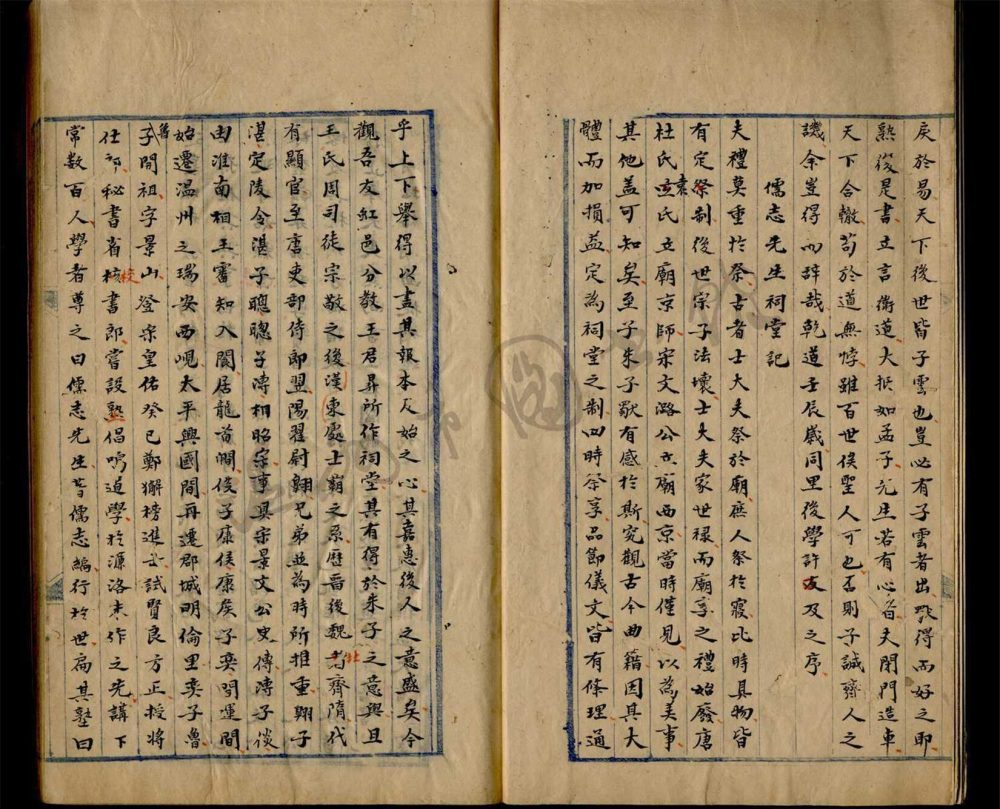 戾於易天下後世皆子雲也豈必有子雲者出歟得而好之即
熟復是書立言衛道大抵如孟子先生若有心者夫閉門造車
天下合轍苟於道無悖雖百世俟聖人可也否則子誠齊人之
譏余豈得而辭哉乾道壬辰歲同里後學許及之序
儒志先生祠堂記
夫禮莫重於祭古者士大夫祭於廟庶人祭於寢比時具物皆
有定祭制後世宗子法壞士大夫家世禄而廟享之禮始廢唐
杜氏袁氏立廟京師宋文潞公立廟西京當時僅見以為美事
其他盖可知矣至子朱子歜有感於斯究觀古今曲籍因其大
體而加損益定為祠堂之制四時祭享品節儀文皆有條理通
乎上下舉得以盡其報本反始之心其嘉惠後人之意盛矣今
觀吾友紅邑分教王君昇所作祠堂其有得於朱子之意與且
王氏周司徒宗敬之後漢東處士霸之系歷晋後魏北齊隋代
有顯官至唐吏部侍郎翌陽翟尉翱兄弟並為時所推重翱子
湛定陵令湛子聰聰子漙相昭宗事具宋景文公史傳漙子俊
由淮南相王審知入閩居龍首㵎俊子康侯康侯子奕問運間
始遷温州之瑞安西峴太平興國間再遷郡城明倫里奕子魯
魯子開祖字景山登宋皇佑癸巳鄭獬榜進士試賢良方正授將
仕郎秘書省校書郎嘗設塾倡鳴道學於濂洛未作之先講下
常数百人學者尊之曰儒志先生著儒志編行於世扁其塾曰